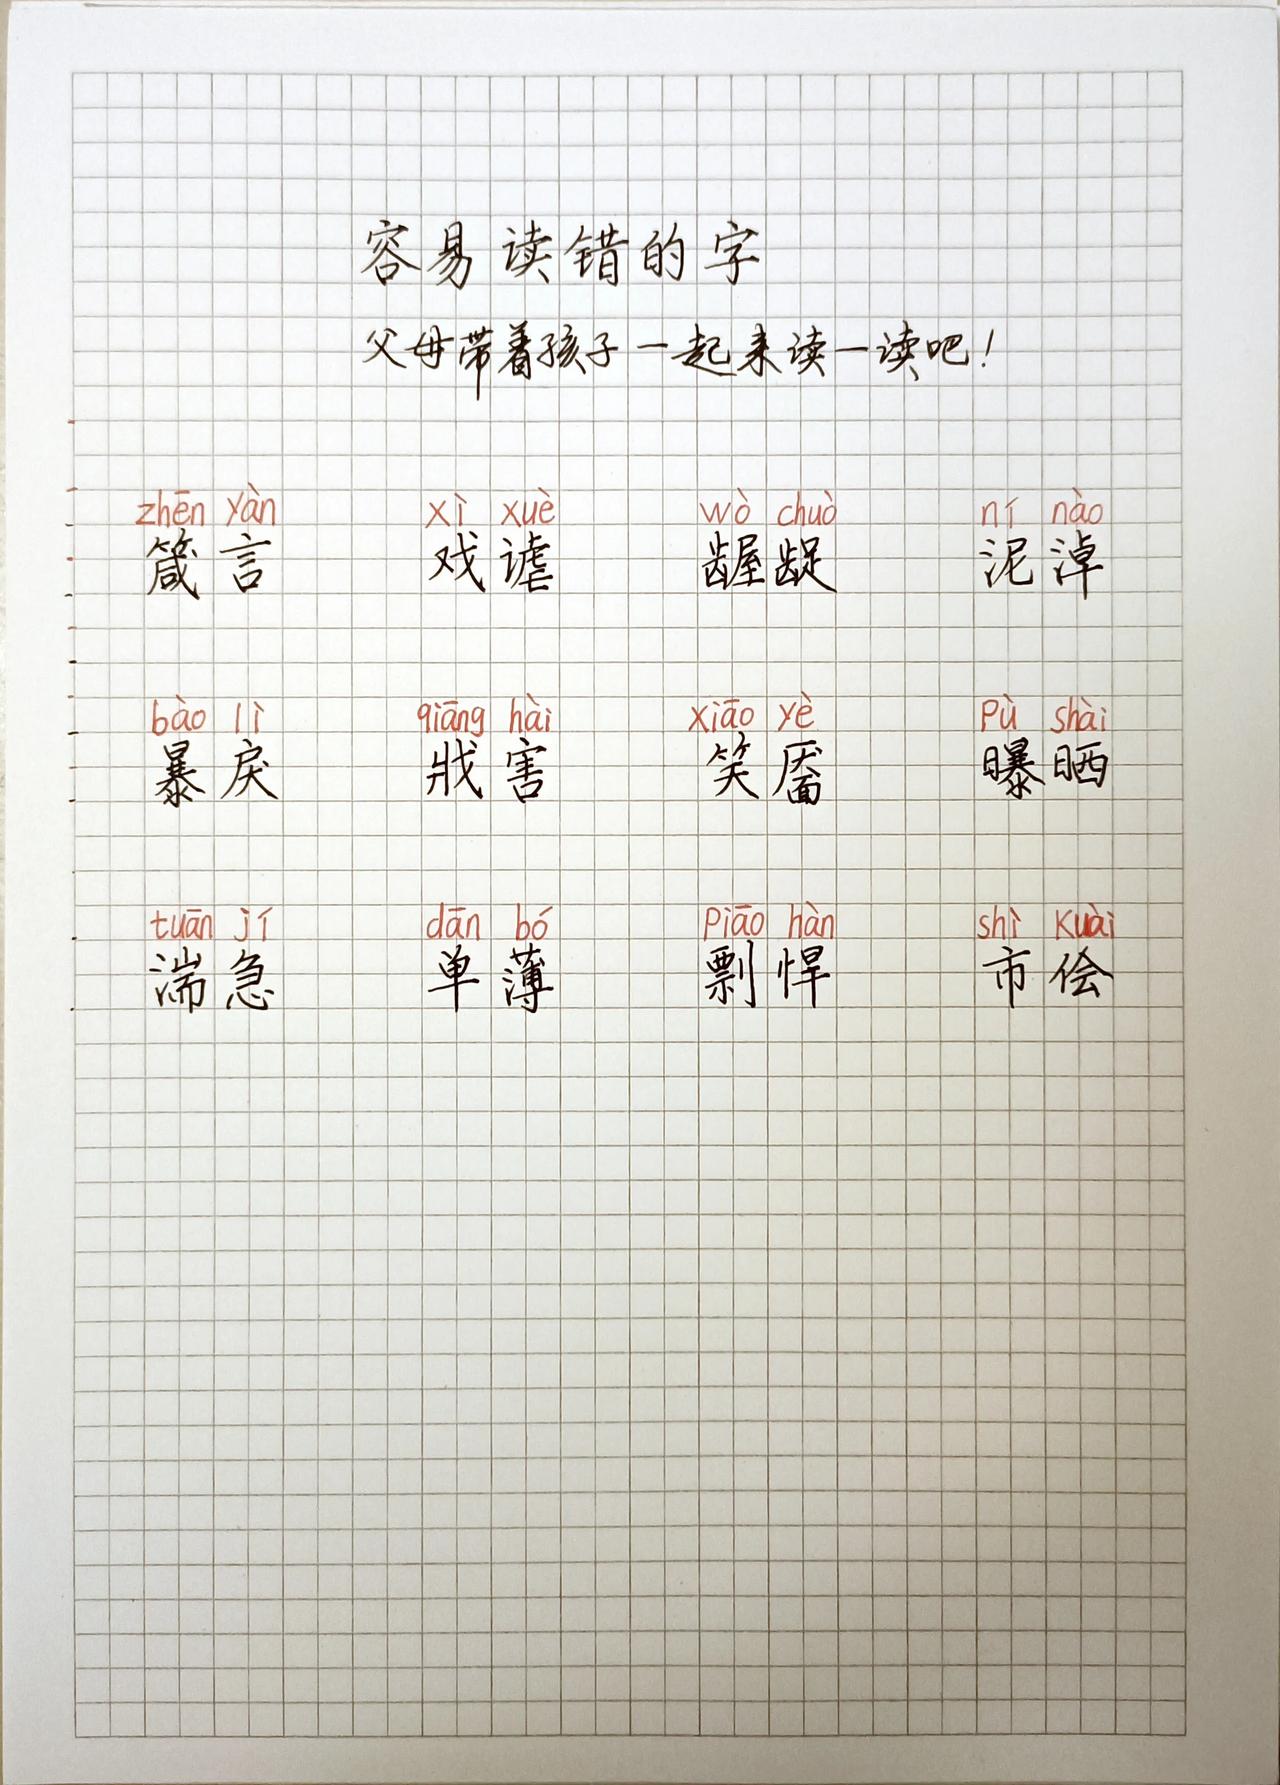 容易读错的字
父母带着孩子一起来读一读吧！
zhēn yàn xì xuè wò chuò ní nào
箴言 戏谑 龌龊 泥淖
bào lì qiāng hài xiāo yè pù shài
暴戾 戕害 笑靥 曝晒
tuān jí dān bó piāo hàn shì kuài
湍急 单薄 剽悍 市侩